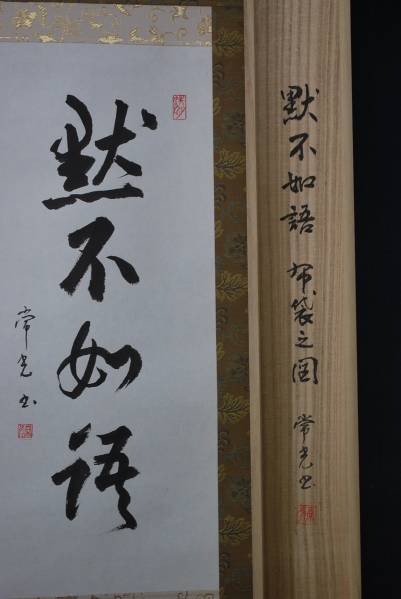 默不如語
常光書
默不如語 布袋之図 常光書